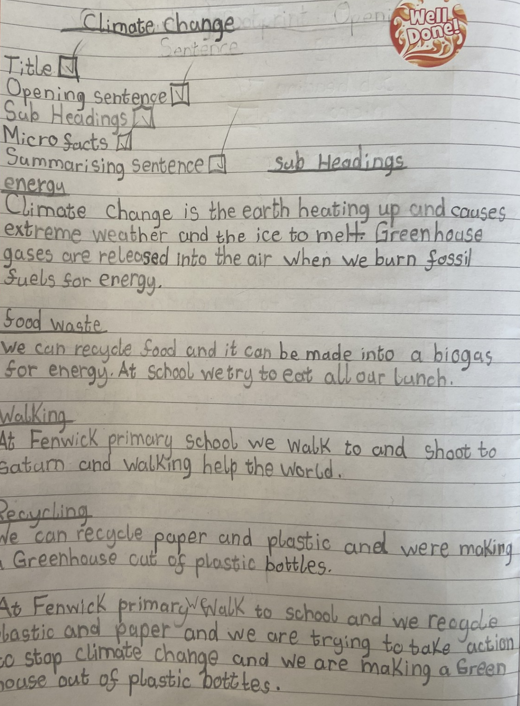 Climate change
Well
Done!
Sentence
Title
Opening sentence
Sub Headings
Micro facts
Summarising sentence
Sub Headings
energy
Climate change is the earth heating up and causes
extreme weather and the ice to melt. Greenhouse
gases are released into the air when we burn fossil
fuels for energy.
food waste
we can recycle food and it can be made into a biogas
for energy. At school we try to eat all our lunch.
Walking
At Fenwick primary school we walk to and shoot to
saturn and walking help the world.
Recycling
We can recycle paper and plastic and were making
a Greenhouse out of plastic bottles.
At Fenwick primary we walk to school and we recycle
plastic and paper and we are trying to take action
to stop climate change and we are making a Green
house out of plastic bottles.